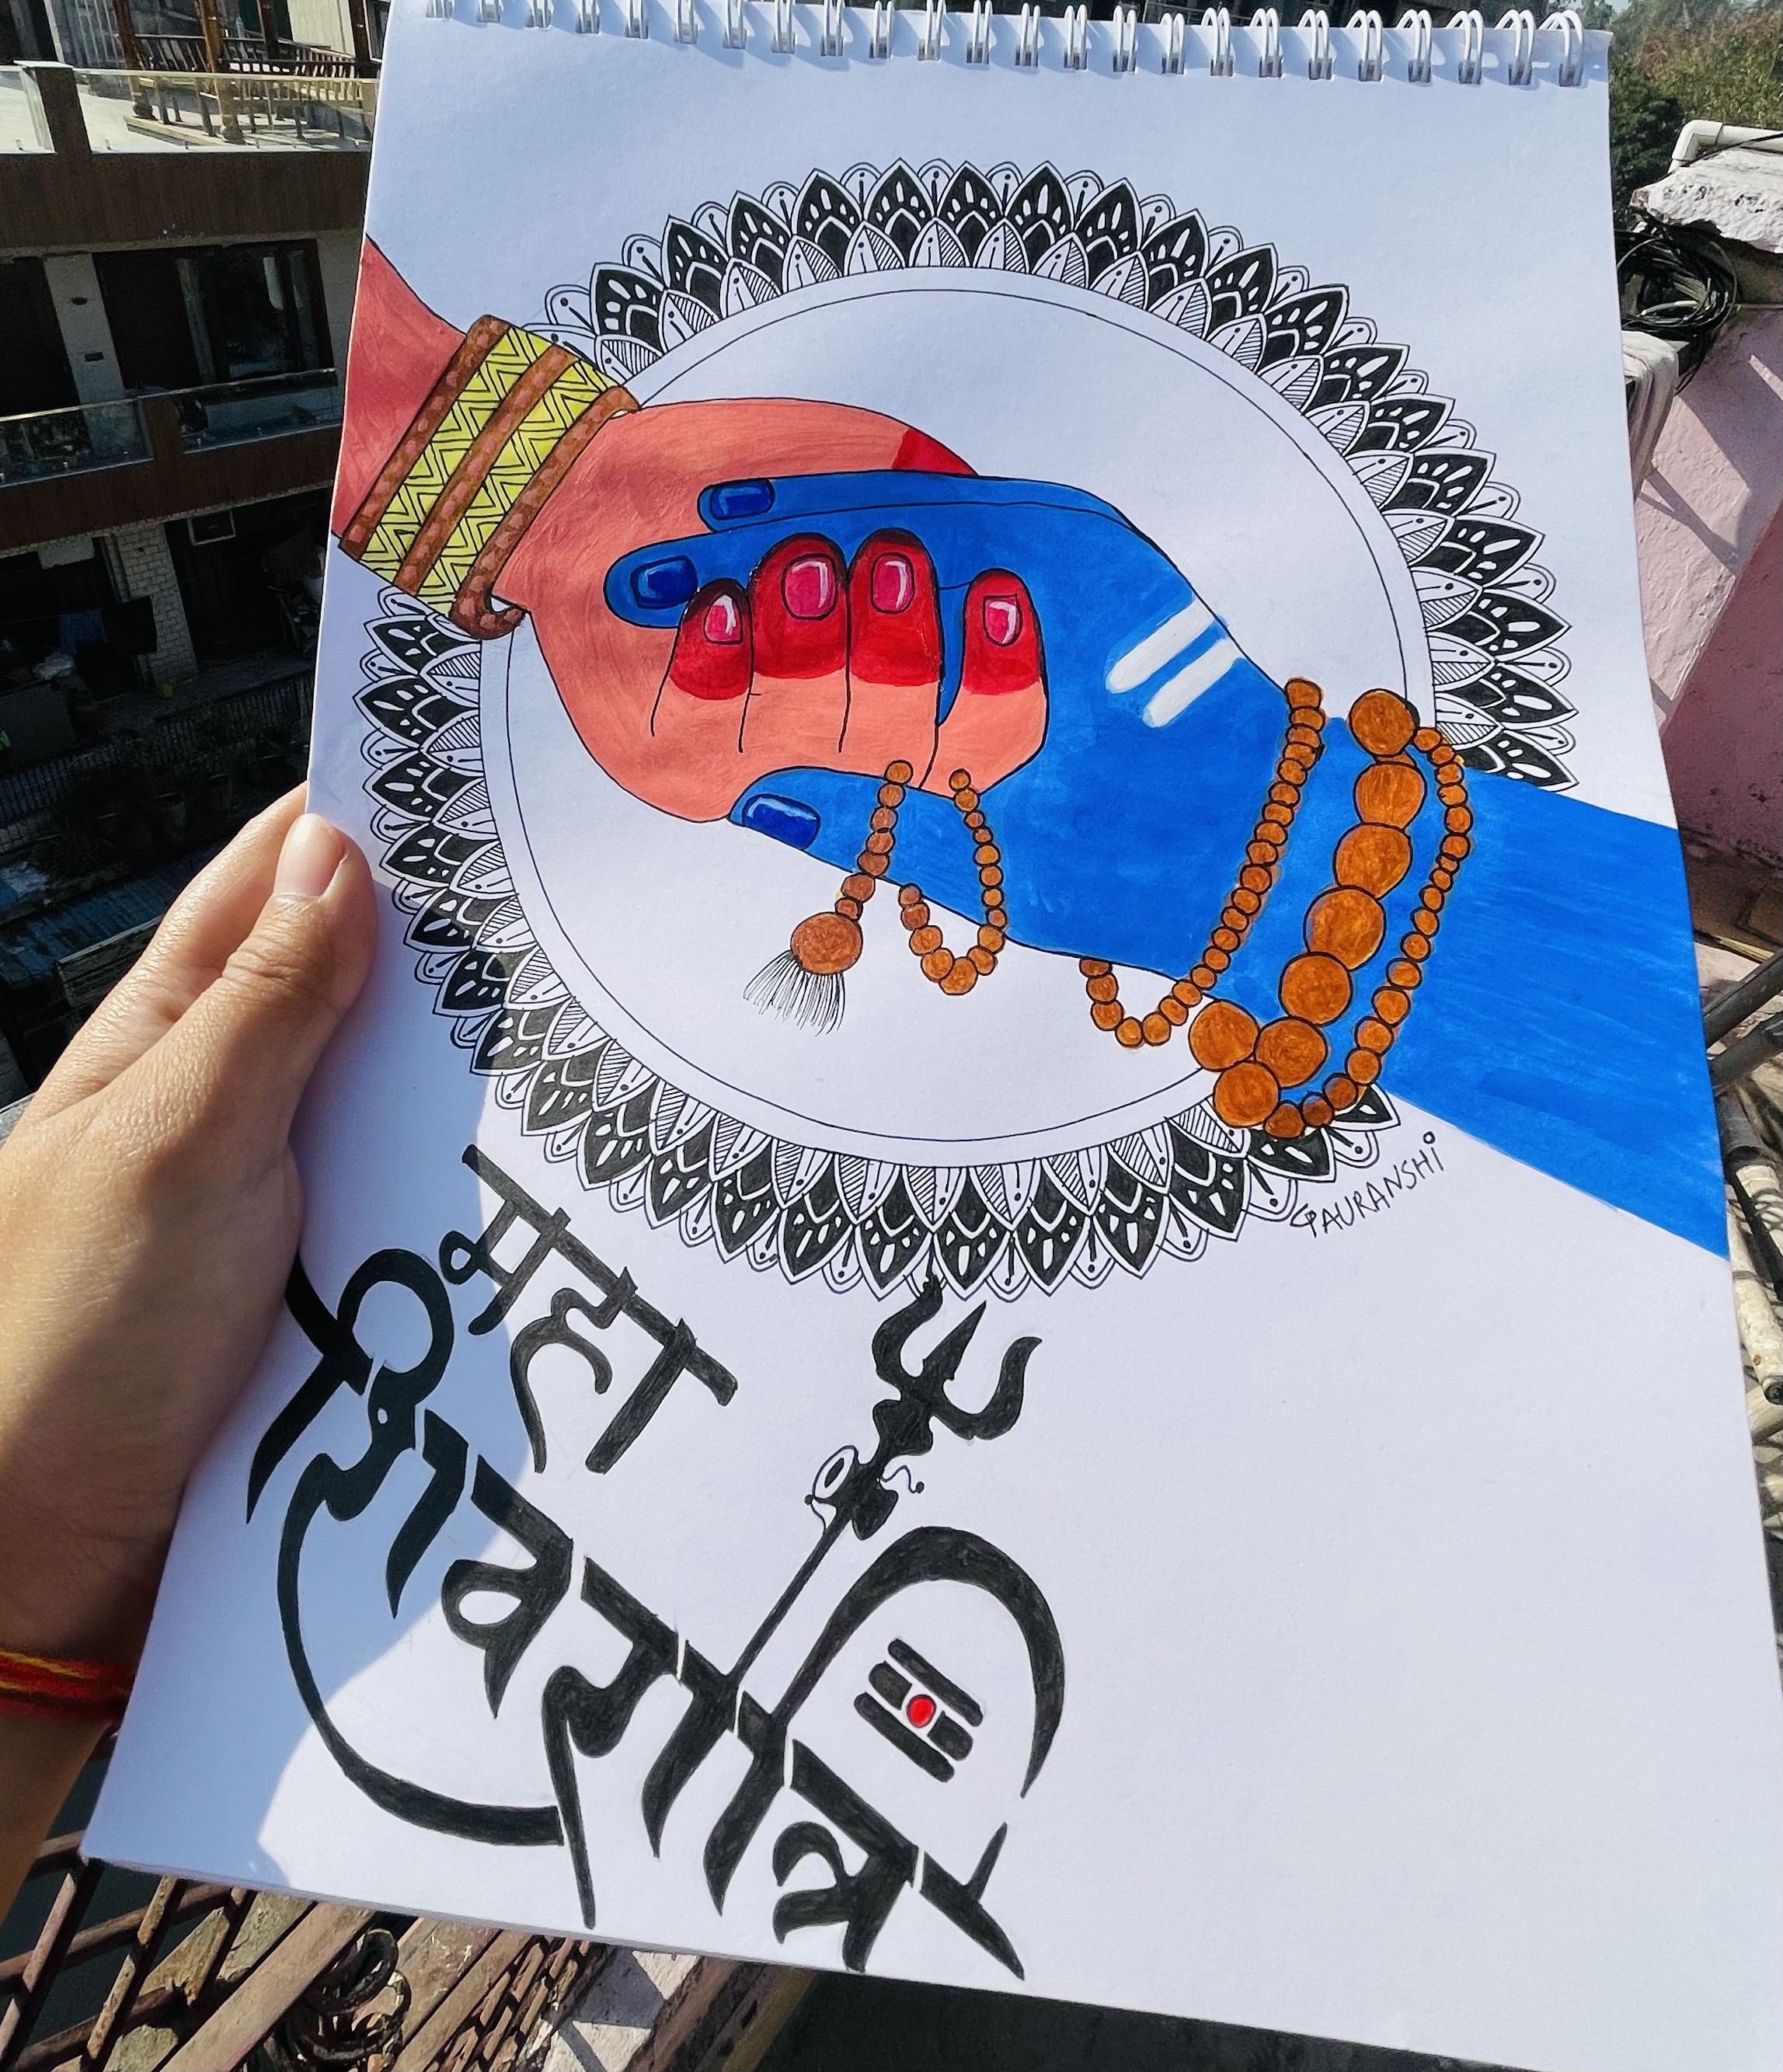 GAURANSHI
महा
शिवरात्रि